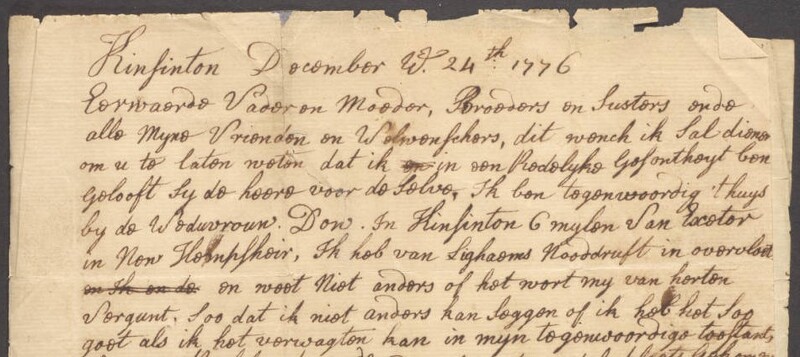 Kinsinton December W. 24th 1776
Eerwaerde Vader en Moeder, Broeders en Susters ende
alle Myne Vrienden en Welwenschers, dit wench ik Sal dienen
om u te laten weten dat ik en in een Redelyke Gesontheyt ben
Gelooft Sy de heere voor de Selve, Ik ben tegenwoordig thuys
by de Weduvrouw. Dow. In Kinsinton 6 mylen Van Exetor
in New Hempsheir, Ik heb van Lighaems Nooddruft in overvloet
en Ik en de en weet Niet anders of het wort my van herten
Vergunt. Soo dat ik niet anders kan Seggen of ik heb het Soo
goet als ik het verwagten kan in mijn tegenwoordige toestant,